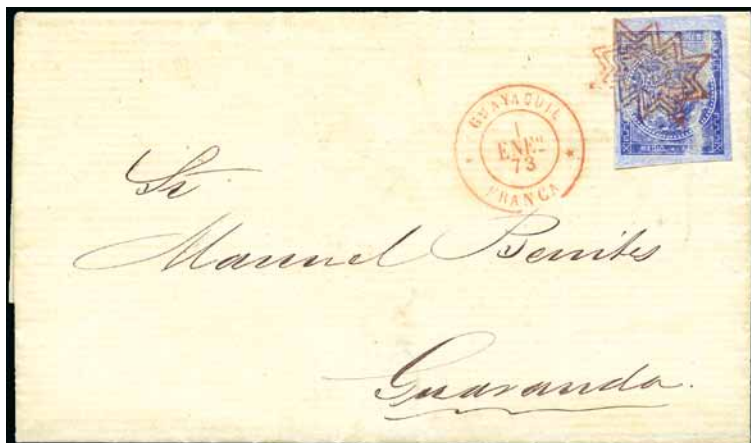 GUAYAQUIL
1
ENEº
73
FRANCA
Sr
Manuel Benites
Guaranda.